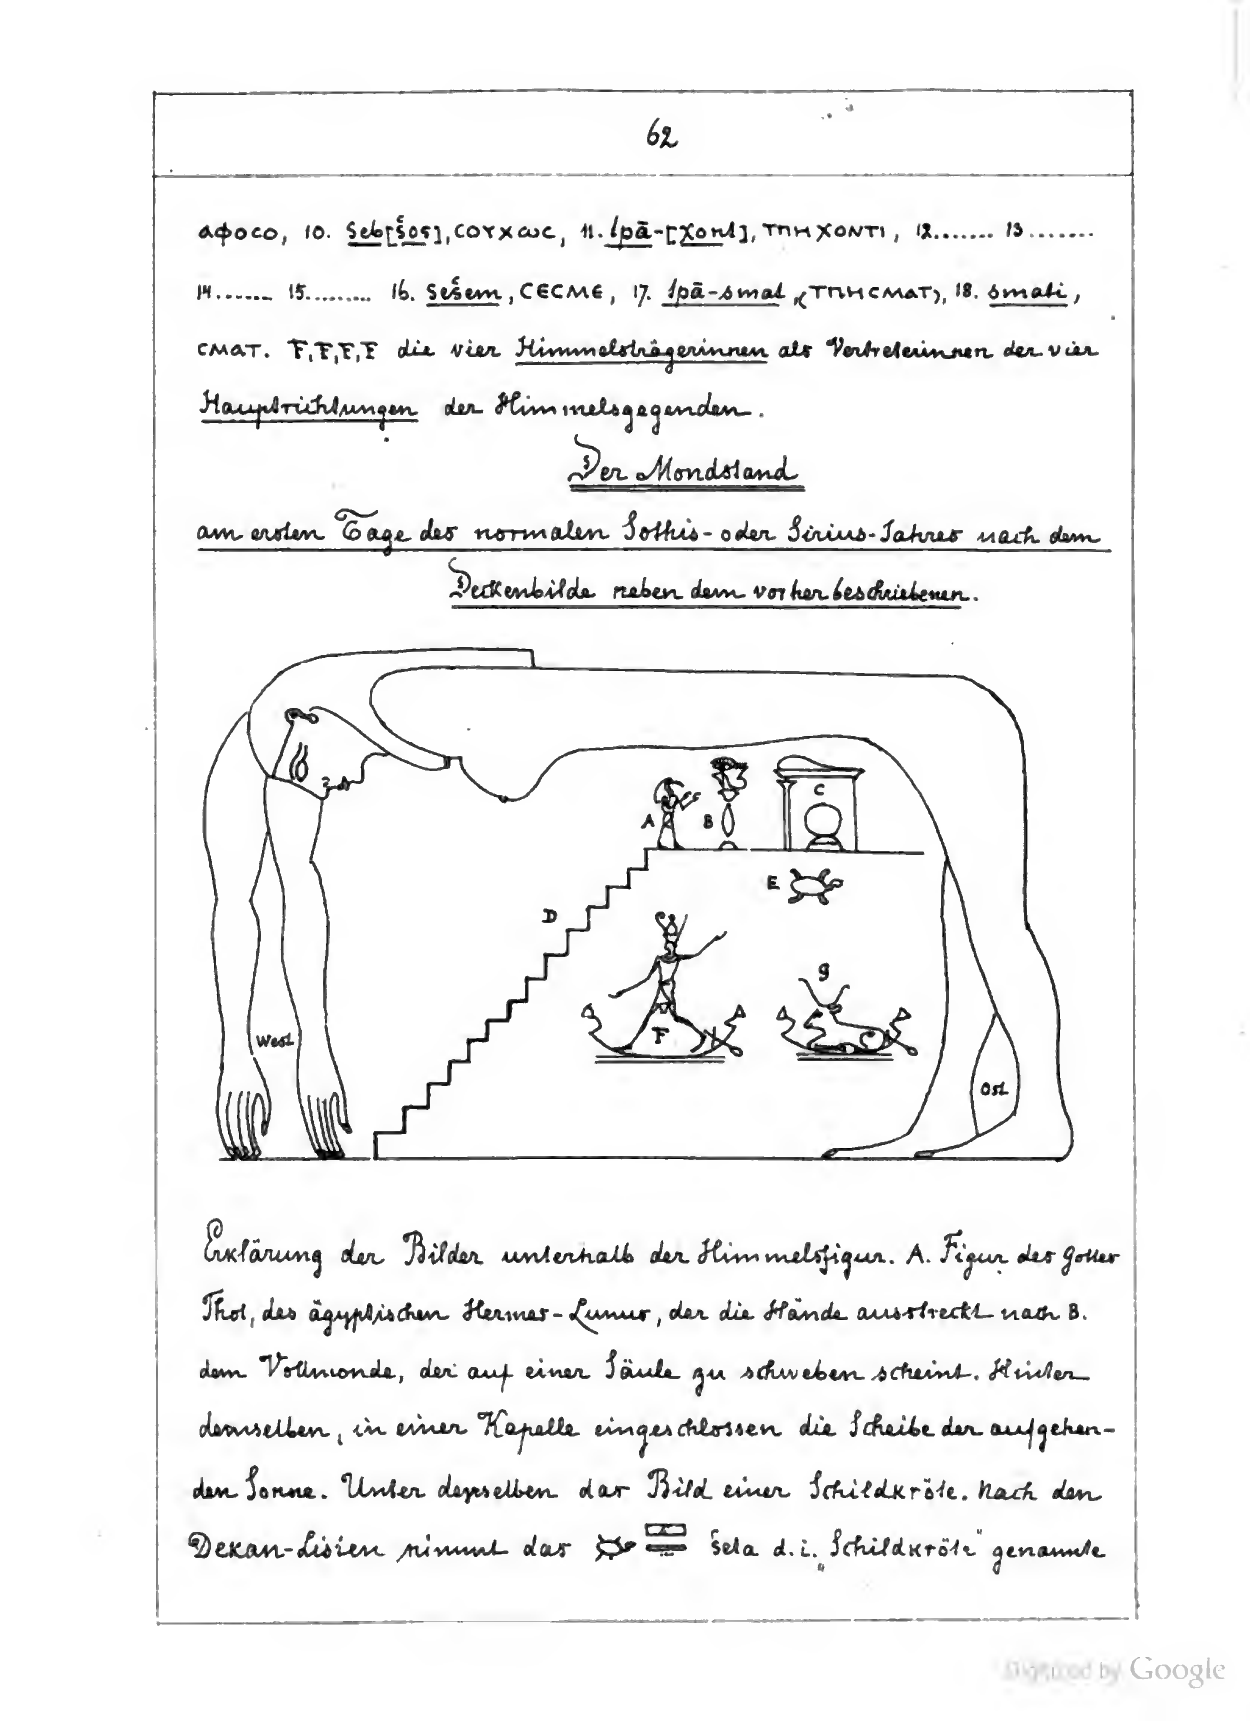 62
ⲁⲫⲟⲥⲟ, 10. Seb[šos], ⲥⲟⲩⲭⲱⲥ, 11. tpā-[χont], ⲧⲡⲏⲭⲟⲛⲧⲓ, 12....... 13.......
14....... 15......... 16. Sešem, ⲥⲉⲥⲙⲉ, 17. tpā-smat, (ⲧⲡⲏⲥⲙⲁⲧ), 18. smati,
ⲥⲙⲁⲧ. F,F,F,F die vier Himmelsträgerinnen als Vertreterinnen der vier
Hauptrichtungen der Himmelsgegenden.
Der Mondstand
am ersten Tage des normalen Sothis- oder Sirius-Jahres nach dem
Deckenbilde neben dem vorher beschriebenen.
A B C
E
D
g
F
West
Ost
Erklärung der Bilder unterhalb der Himmelsfigur. A. Figur des Gottes
Thot, des ägyptischen Hermes-Lunus, der die Hände ausstreckt nach B.
dem Vollmonde, der auf einer Säule zu schweben scheint. Hinter
demselben, in einer Kapelle eingeschlossen die Scheibe der aufgehen-
den Sonne. Unter derselben das Bild einer Schildkröte. Nach den
Dekan-Listen nimmt das šeta d.i. „Schildkröte" genannte
Digitized by Google